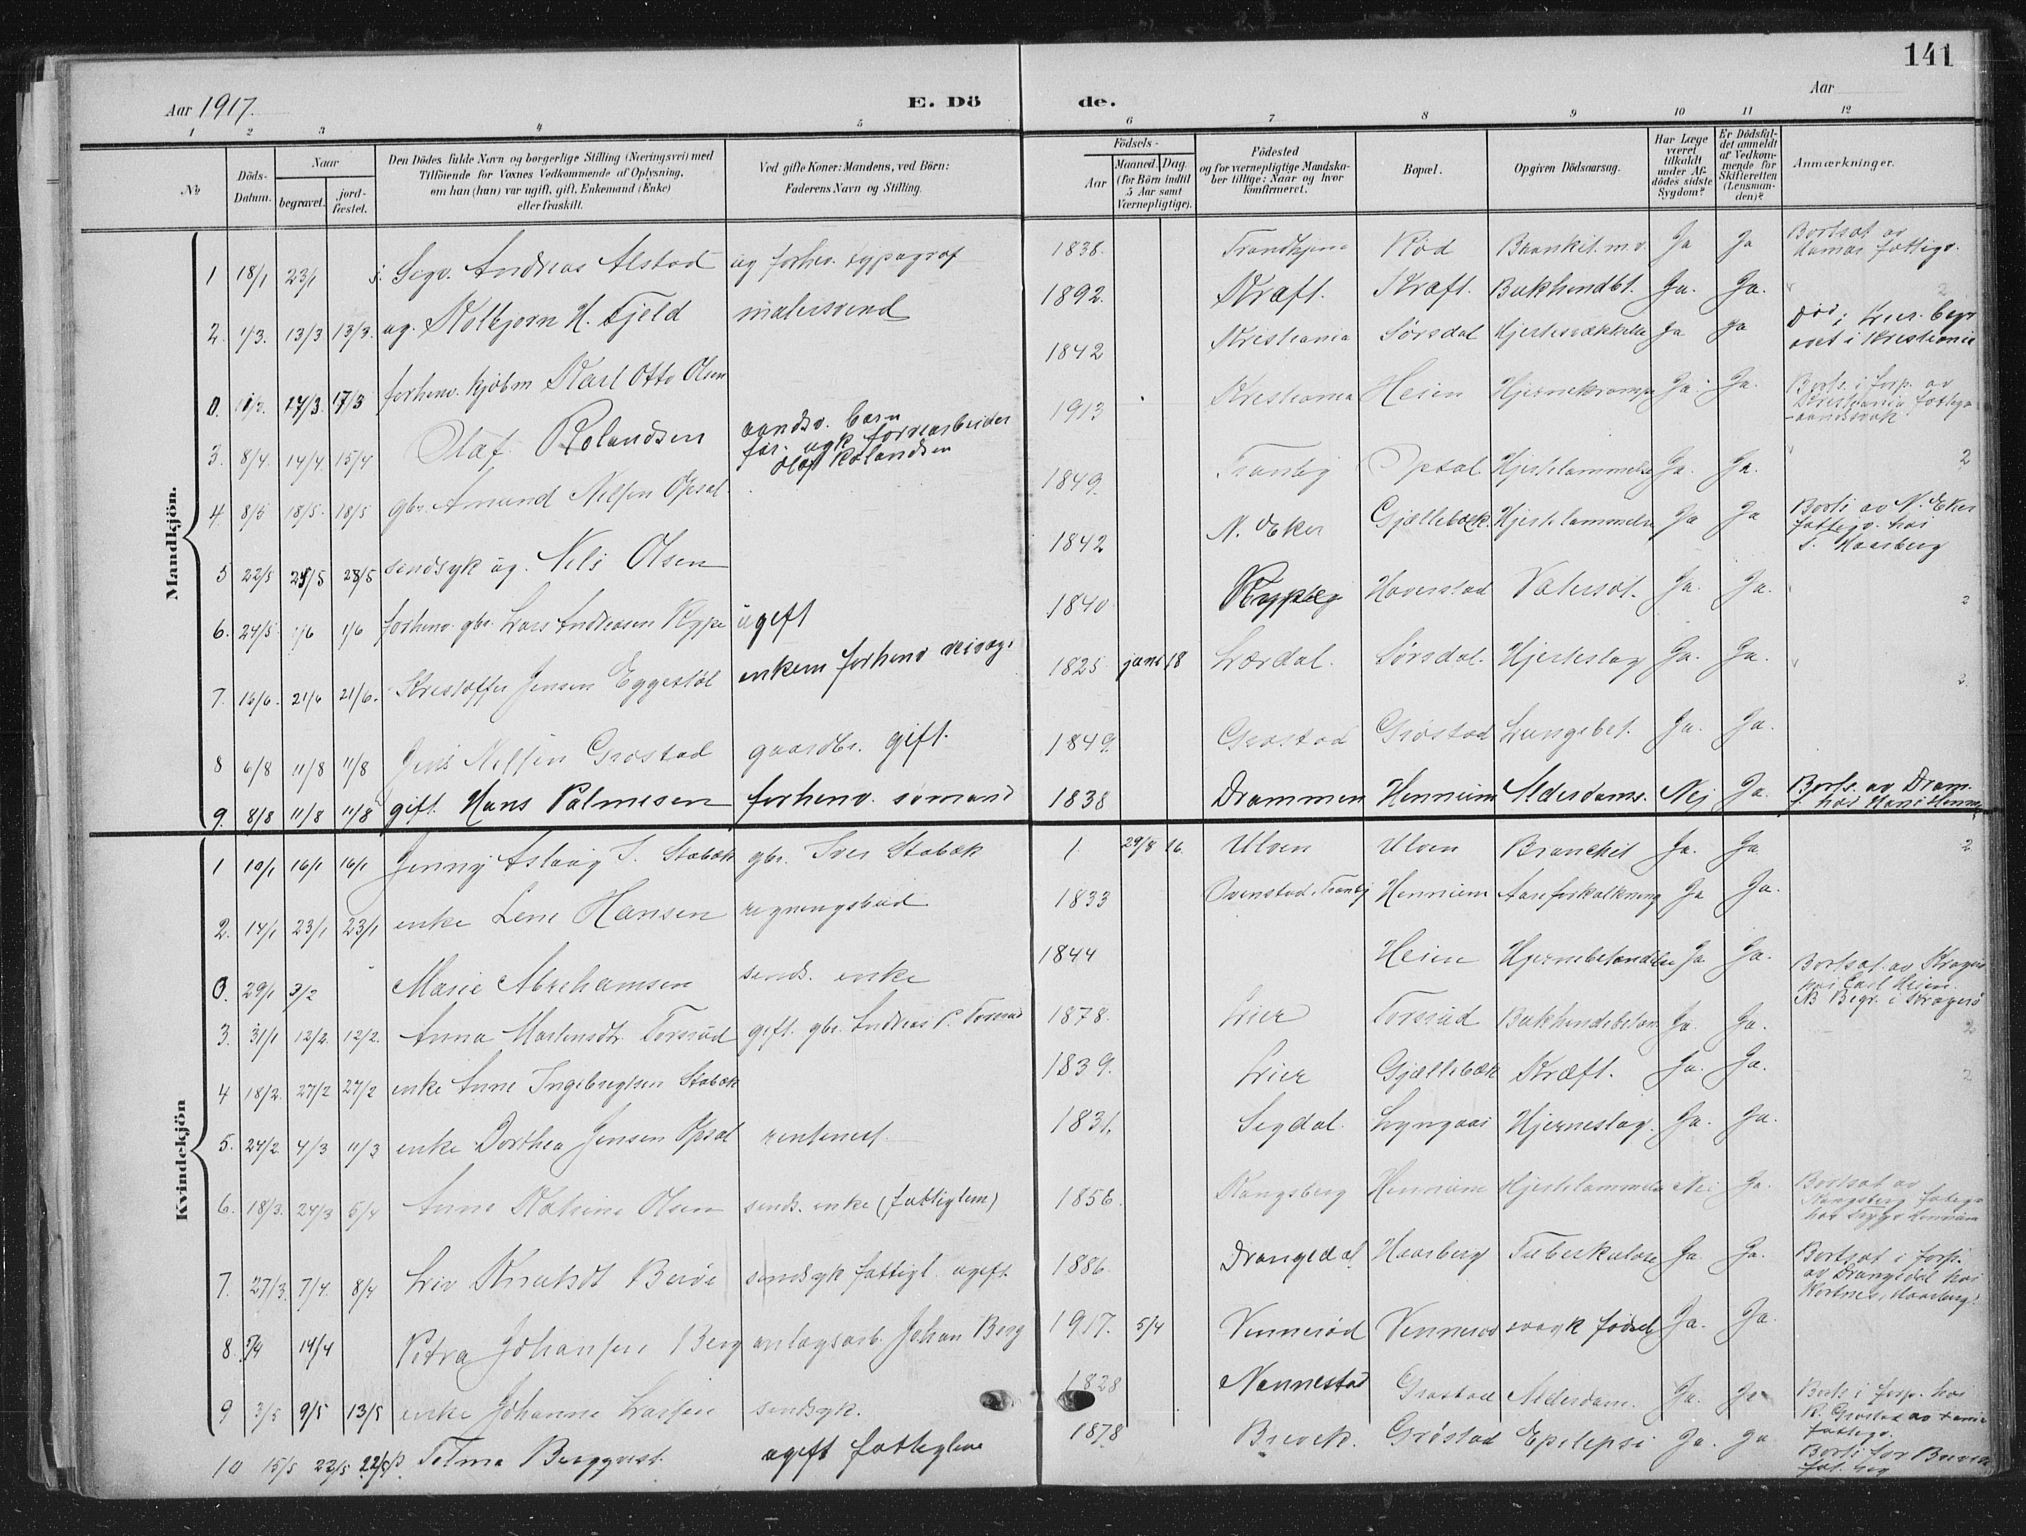 141
Aar 1917.
E. Dö
de.
Aar
1 2 3 4 5 6 7 8 9 10 11 12
No
Döds-Datum.
Naar
begravet.
jord-fæstet.
Den Dödes fulde Navn og borgerlige Stilling (Næringsvei) med
Tilföiende for Voxnes Vedkommende af Oplysning,
om han (hun) var ugift, gift, Enkemand (Enke)
eller fraskilt.
Ved gifte Koner: Mandens, ved Börn:
Faderens Navn og Stilling.
Födsels-
Aar
Maaned. Dag.
(for Börn indtil
5 Aar samt
Værnepligtige).
Födested
og for værnepligtige Mandska-
ber tillige: Naar og hvor
konfirmeret.
Bopæl.
Opgiven Dödsaarsag.
Har Læge
været
tilkaldt
under Af-
dödes sidste
Sygdom?
Er Dödsfal-
det anmeldt
af Vedkom-
mende for
Skifteretten
(Lensman-
den)?
Anmærkninger.
Mandkjön.
1 18/1 23/1 Andreas Alstad ug forhv. typograf 1838 Trondhjem Rød Ja Ja Bortsat av Hamar fattigv.
2. 1/3. 13/3 13/3. ug. Kolbjørn H. Fjeld malersvend 1892. Kræft. Ja. Ja.
0. 17/3. 17/3 forhenv. kjøbm Karl Otto Olsen 1842 Kristiania Sørsdal Ja Ja Død i Lier. Begr avet i Kristiania
3. 8/4. 14/4. 15/4 Olaf Rolandsen aandsv. barn Olaf Rolandsen 1913 Kristiania Heien Hjernekrampe Ja. Ja. Borts. i forp. av Kristiania fattigv aandssvak
4. 8/5 18/5. 18/5 gbr Amund Nilsen Opsal. 1849. Tranby Opsal Hjertelammelse Ja. Ja. 2
5 22/5 28/5 sindsyk ug. Nils Olsen 1842 N. Eker Gjellebæk. Hjertelammelse Ja Ja Borts av N. Eker fattigv. hos S. Haarberg
6. 24/5. 1/6 1/6 forhenv. gbr. Lars Andreasen Rype ugift 1840 Haverstad Ja. Ja. 2
7. 16/6. 21/6 21/6. Kristoffer Jensen Eggestøl enkem forhenv 1825 18 Lærdal. Sørsdal. Hjerteslag Ja. Ja. 2.
8 6/8 11/8 11/8 Jens Nilsen Grøstad gaardbr. gift. 1849. Grøstad Grøstad Lungebet. Ja. Ja.
9. 8/8 11/8 11/8 gift. Hans Palmesen forhenv. sømand 1838 Drammen Hennum Alderdoms. Nej Ja. Borts. av Dram.
Kvindekjön
1 10/1 16/1 16/1 Jenny Aslaug I. Stabæk gbr. Iver Stabæk 1 29/8 16. Ulven Ulven Bronchit Ja. Ja 2
2. 14/1 23/1 23/1 enke Lene Hansen regningsbud 1833 Ovenstad, Tranby Hennum Aareforkalkning Ja Ja.
0. 29/1 3/2 Marie Abrahamsen sinds. enke 1844 Heien Hjernebetændelse Ja Ja. Bortsat. av Kragerø hos Carl Heien. NB Begr. i Kragerø
3. 31/1 12/2 12/2. Anna Martensdtr Torsrud gift. gbr. Andreas P. Torsrud 1878. Lier Torsrud Ja. Ja. 2
4 18/2. 27/2 27/2 enke Anne Ingebregtsen Stabæk 1839. Lier Gjellebæk Kræft. Ja. Ja. 2
5. 24/2. 4/3 11/3 enke Dorthea Jensen Opsal rentenist. 1831. Sigdal. Lyngaas Hjerneslag. Ja. Ja.
6. 18/3. 24/3 5/4 Anne Olsen sinds. enke (fattiglem) 1856. Kongsberg Hennum Hjertelammelse Nei Ja. Bortsat av Kongsberg fattigv
7. 27/3. 7/4. 8/4 Liv sindsyk fattigl. ugift 1886. Drangedal Haarberg Tuberkulose Ja. Ja. Bortsat i forp. av Drangedal hos Haarberg.
8. 5/4 14/4 Petra Johansen Berg anlægsarb. Johan Berg 1917. 5/4 Vennerød Vennerød svak fødsel Ja. Ja.
9 3/5 9/5 13/5 enke Johanne Larsen sindsyk. 1828 Nannestad Grøstad Alderdom. Ja. Ja Borts i forp. hos Grøstad av fattigv.
10 15/5 22/5 22/5 Telma Bergqvist. ugift fattiglem 1878 Brevik. Grøstad Epilepsi Ja. Ja